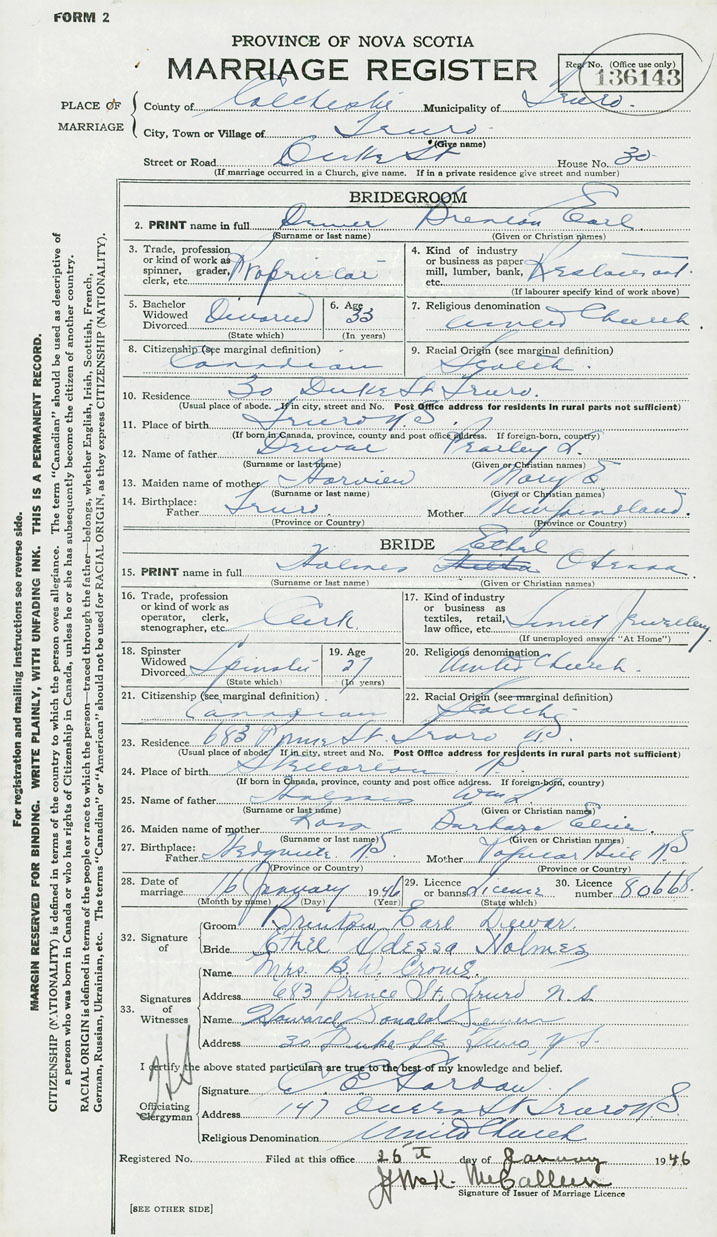 FORM 2
PROVINCE OF NOVA SCOTIA
MARRIAGE REGISTER
Reg. No. (Office use only)
136143
PLACE OF MARRIAGE
County of Colchester Municipality of Truro.
City, Town or Village of Truro.
(Give name)
Street or Road Duke St House No. 30
(If marriage occurred in a Church, give name. If in a private residence give street and number)
BRIDEGROOM
2. PRINT name in full Dewar Brenton Earl
(Surname or last name) (Given or Christian names)
3. Trade, profession or kind of work as spinner, grader, clerk, etc. Proprietor
4. Kind of industry or business as paper mill, lumber, bank, etc. Restaurant.
(If labourer specify kind of work above)
5. Bachelor Widowed Divorced Divorced
(State which)
6. Age 33
(In years)
7. Religious denomination United Church.
8. Citizenship (see marginal definition) Canadian
9. Racial Origin (see marginal definition) Scotch.
10. Residence 30 Duke St Truro.
(Usual place of abode. If in city, street and No. Post Office address for residents in rural parts not sufficient)
11. Place of birth Truro N S.
(If born in Canada, province, county and post office address. If foreign-born, country)
12. Name of father Dewar Pearley L.
(Surname or last name) (Given or Christian names)
13. Maiden name of mother Mary E
(Surname or last name) (Given or Christian names)
14. Birthplace: Father Truro. Mother Newfoundland.
(Province or Country) (Province or Country)
BRIDE
15. PRINT name in full Holmes Ethel Odessa
(Surname or last name) (Given or Christian names)
16. Trade, profession or kind of work as operator, clerk, stenographer, etc. Clerk
17. Kind of industry or business as textiles, retail, law office, etc. Jewellery.
(If unemployed answer "At Home")
18. Spinster Widowed Divorced Spinster
(State which)
19. Age 27
(In years)
20. Religious denomination United Church.
21. Citizenship (see marginal definition) Canadian
22. Racial Origin (see marginal definition) Scotch
23. Residence 683 Prince St. Truro N S
(Usual place of abode. If in city, street and No. Post Office address for residents in rural parts not sufficient)
24. Place of birth Stellarton N S.
(If born in Canada, province, county and post office address. If foreign-born, country)
25. Name of father Holmes
(Surname or last name) (Given or Christian names)
26. Maiden name of mother Ross Barbara
(Surname or last name) (Given or Christian names)
27. Birthplace: Father N S Mother Hill N S
(Province or Country) (Province or Country)
28. Date of marriage 16 January 1946
(Month by name) (Day) (Year)
29. Licence or banns License
(State which)
30. Licence number 80668.
32. Signature of
Groom Brenton Earl Dewar.
Bride Ethel Odessa Holmes
33. Signatures of Witnesses
Name Mrs. B. W. Crowe.
Address 683 Prince St, Truro N.S.
Name Howard Donald Dewar
Address 30 Duke St. Truro, N.S.
I certify the above stated particulars are true to the best of my knowledge and belief.
Officiating Clergyman
Signature C E Gordon.
Address 147 Queen St Truro N S
Religious Denomination United Church
Registered No. Filed at this office 26th day of January 1946
Signature of Issuer of Marriage Licence
[SEE OTHER SIDE]
For registration and mailing instructions see reverse side.
MARGIN RESERVED FOR BINDING. WRITE PLAINLY, WITH UNFADING INK. THIS IS A PERMANENT RECORD.
CITIZENSHIP (NATIONALITY) is defined in terms of the country to which the person owes allegiance. The term "Canadian" should be used as descriptive of
a person who was born in Canada or who has rights of Citizenship in Canada, unless he or she has subsequently become the citizen of another country.
RACIAL ORIGIN is defined in terms of the people or race to which the person—traced through the father—belongs, whether English, Irish, Scottish, French,
German, Russian, Ukrainian, etc. The terms "Canadian" or "American" should not be used for RACIAL ORIGIN, as they express CITIZENSHIP (NATIONALITY).